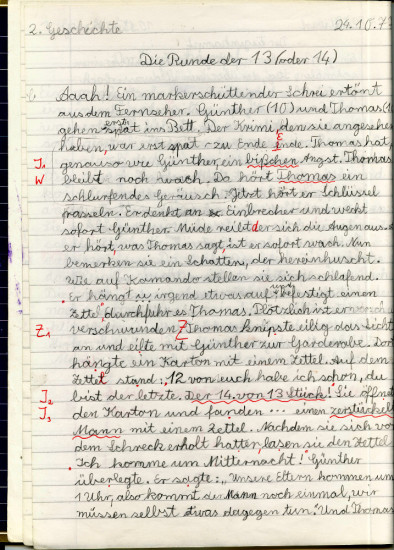 2. Geschichte 24.10.73
Die Runde der 13 (oder 14)
Aaah! Ein markerschütternder Schrei ertönt
aus dem Fernseher. Günther (10) und Thomas (1
gehen erst spät ins Bett. Der Krimi, den sie angesehen
haben, war erst spät zu Ende Ende. Thomas hat,
J. genauso wie Günther, ein bißchen Angst. Thomas
W bleibt noch wach. Da hört Thomas ein
schlurfendes Geräusch. Jetzt hört er Schlüssel
rasseln. Er denkt an Einbrecher und weckt
sofort Günther. Müde reibt der sich die Augen aus.
er hört, was Thomas sagt, ist er sofort wach. Nun
bemerken sie ein Schatten, der hereinhuscht.
Wie auf Komando stellen sie sich schlafend.
Er hängt irgend etwas auf und befestigt einen
Zettel, durchfuhr es Thomas. Plötzlich ist er
Z1 verschwunden. Thomas knipste eilig das Licht
an und eilte mit Günther zur Garderobe. Dort
hängte ein Karton mit einem Zettel. Auf dem
Zettel stand: „12 von euch habe ich schon, du
J2 bist der letzte. Der 14. von 13 Stück! Sie öffnet
J3 den Karton und fanden ... einen zerstückel
Mann mit einem Zettel. Nachdem sie sich vo
dem Schreck erholt hatten, lasen sie den Zettel
Ich komme um Mitternacht! Günther
überlegte. Er sagte: „Unsere Eltern kommen um
1 Uhr, also kommt der Mann noch einmal, wir
müssen selbst etwas dagegen tun. Und Thomas